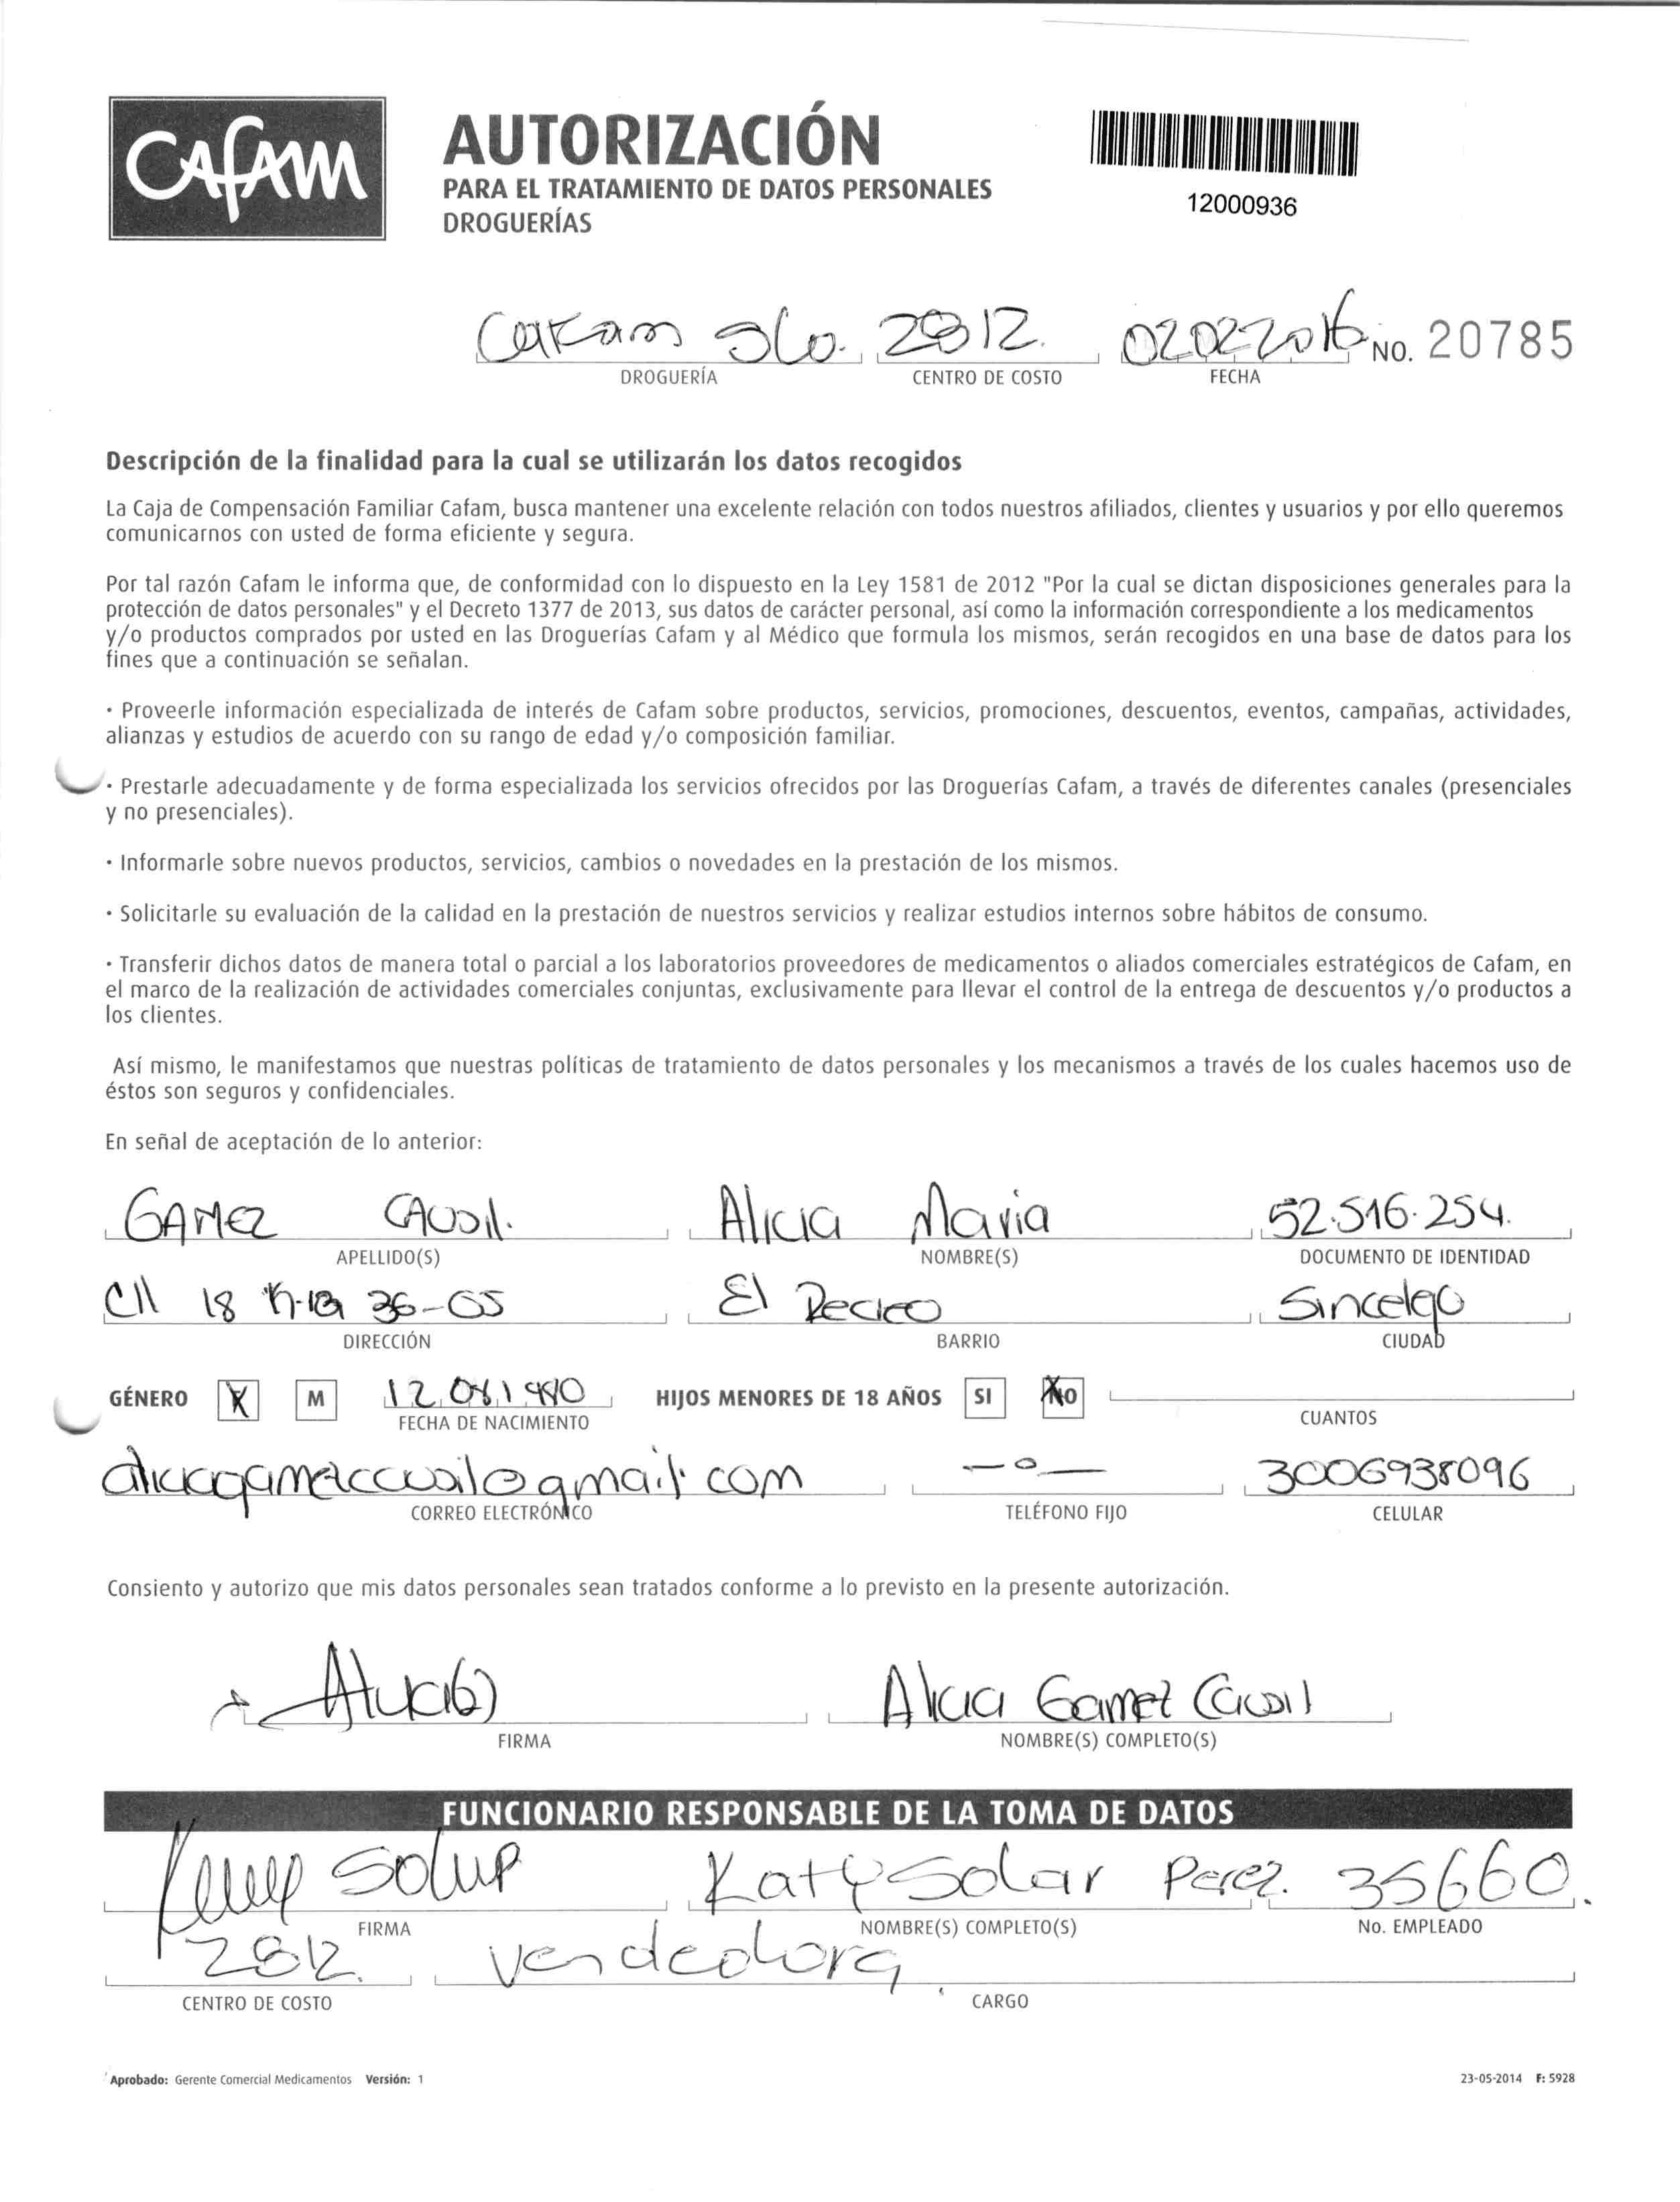 CAFAM
AUTORIZACIÓN
PARA EL TRATAMIENTO DE DATOS PERSONALES
DROGUERÍAS
12000936
Cafam Slo. 2812. 02022016 NO. 20785
DROGUERÍA CENTRO DE COSTO FECHA
Descripción de la finalidad para la cual se utilizarán los datos recogidos
La Caja de Compensación Familiar Cafam, busca mantener una excelente relación con todos nuestros afiliados, clientes y usuarios y por ello queremos
comunicarnos con usted de forma eficiente y segura.
Por tal razón Cafam le informa que, de conformidad con lo dispuesto en la Ley 1581 de 2012 "Por la cual se dictan disposiciones generales para la
protección de datos personales" y el Decreto 1377 de 2013, sus datos de carácter personal, así como la información correspondiente a los medicamentos
y/o productos comprados por usted en las Droguerías Cafam y al Médico que formula los mismos, serán recogidos en una base de datos para los
fines que a continuación se señalan.
· Proveerle información especializada de interés de Cafam sobre productos, servicios, promociones, descuentos, eventos, campañas, actividades,
alianzas y estudios de acuerdo con su rango de edad y/o composición familiar.
· Prestarle adecuadamente y de forma especializada los servicios ofrecidos por las Droguerías Cafam, a través de diferentes canales (presenciales
y no presenciales).
· Informarle sobre nuevos productos, servicios, cambios o novedades en la prestación de los mismos.
· Solicitarle su evaluación de la calidad en la prestación de nuestros servicios y realizar estudios internos sobre hábitos de consumo.
· Transferir dichos datos de manera total o parcial a los laboratorios proveedores de medicamentos o aliados comerciales estratégicos de Cafam, en
el marco de la realización de actividades comerciales conjuntas, exclusivamente para llevar el control de la entrega de descuentos y/o productos a
los clientes.
Así mismo, le manifestamos que nuestras políticas de tratamiento de datos personales y los mecanismos a través de los cuales hacemos uso de
éstos son seguros y confidenciales.
En señal de aceptación de lo anterior:
GAMEZ CAUSIL. Alicia Maria 52.516.254.
APELLIDO(S) NOMBRE(S) DOCUMENTO DE IDENTIDAD
Cll 18 36-65 El Recreo Sincelejo
DIRECCIÓN BARRIO CIUDAD
GÉNERO X M 12 08 1980 HIJOS MENORES DE 18 AÑOS SI NO
FECHA DE NACIMIENTO CUANTOS
aliciagamezcausil@gmail.com —o— 3006938096
CORREO ELECTRÓNICO TELÉFONO FIJO CELULAR
Consiento y autorizo que mis datos personales sean tratados conforme a lo previsto en la presente autorización.
Alicia Gamez Causil
FIRMA NOMBRE(S) COMPLETO(S)
FUNCIONARIO RESPONSABLE DE LA TOMA DE DATOS
Katy Solar Perez. 35660.
FIRMA NOMBRE(S) COMPLETO(S) No. EMPLEADO
2812. Vendedora.
CENTRO DE COSTO CARGO
Aprobado: Gerente Comercial Medicamentos Versión: 1 23-05-2014 F: 5928